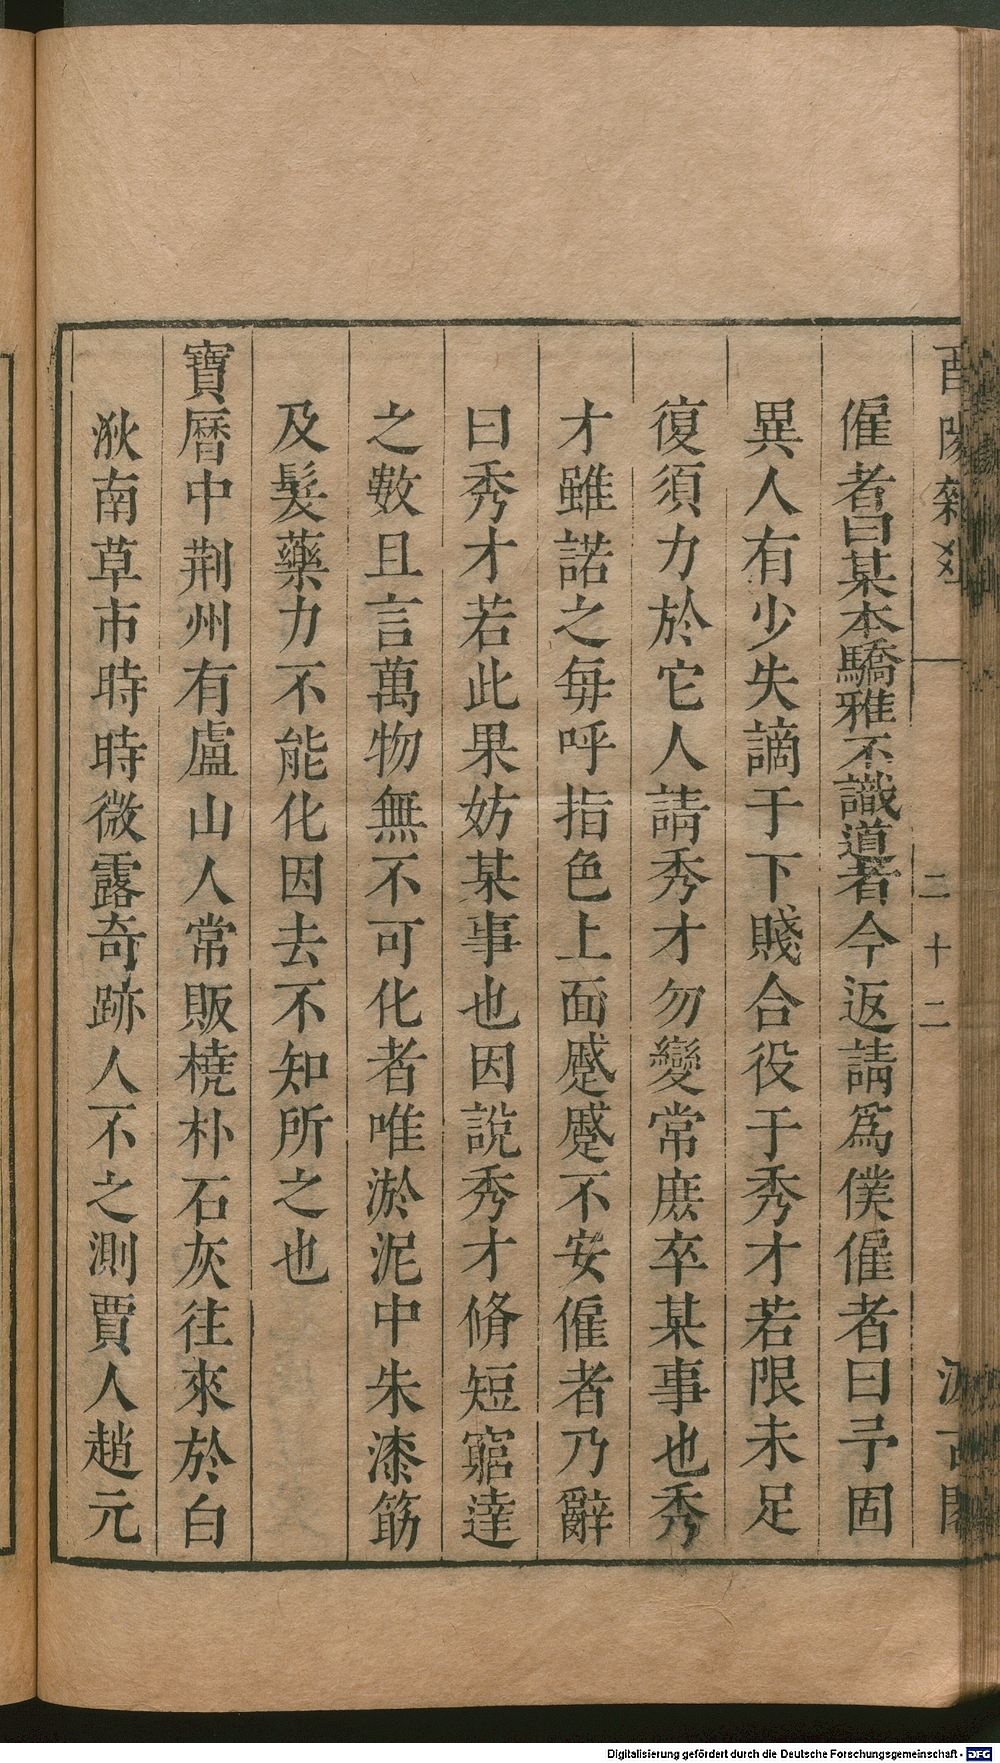 酉陽雜爼
二十二
汲古閣
僱者曰某本驕雅不識道者今返請爲僕僱者曰予固
異人有少失謫于下賤合役于秀才若限未足
復須力於它人請秀才勿變常庶卒某事也秀
才雖諾之每呼指色上面蹙蹙不安僱者乃辭
曰秀才若此果妨某事也因說秀才脩短窮達
之數且言萬物無不可化者唯淤泥中朱漆筯
及髮藥力不能化因去不知所之也
寶曆中荆州有盧山人常販橈朴石灰往來於白
洑南草市時時微露奇跡人不之測賈人趙元
Digitalisierung gefördert durch die Deutsche Forschungsgemeinschaft - DFG